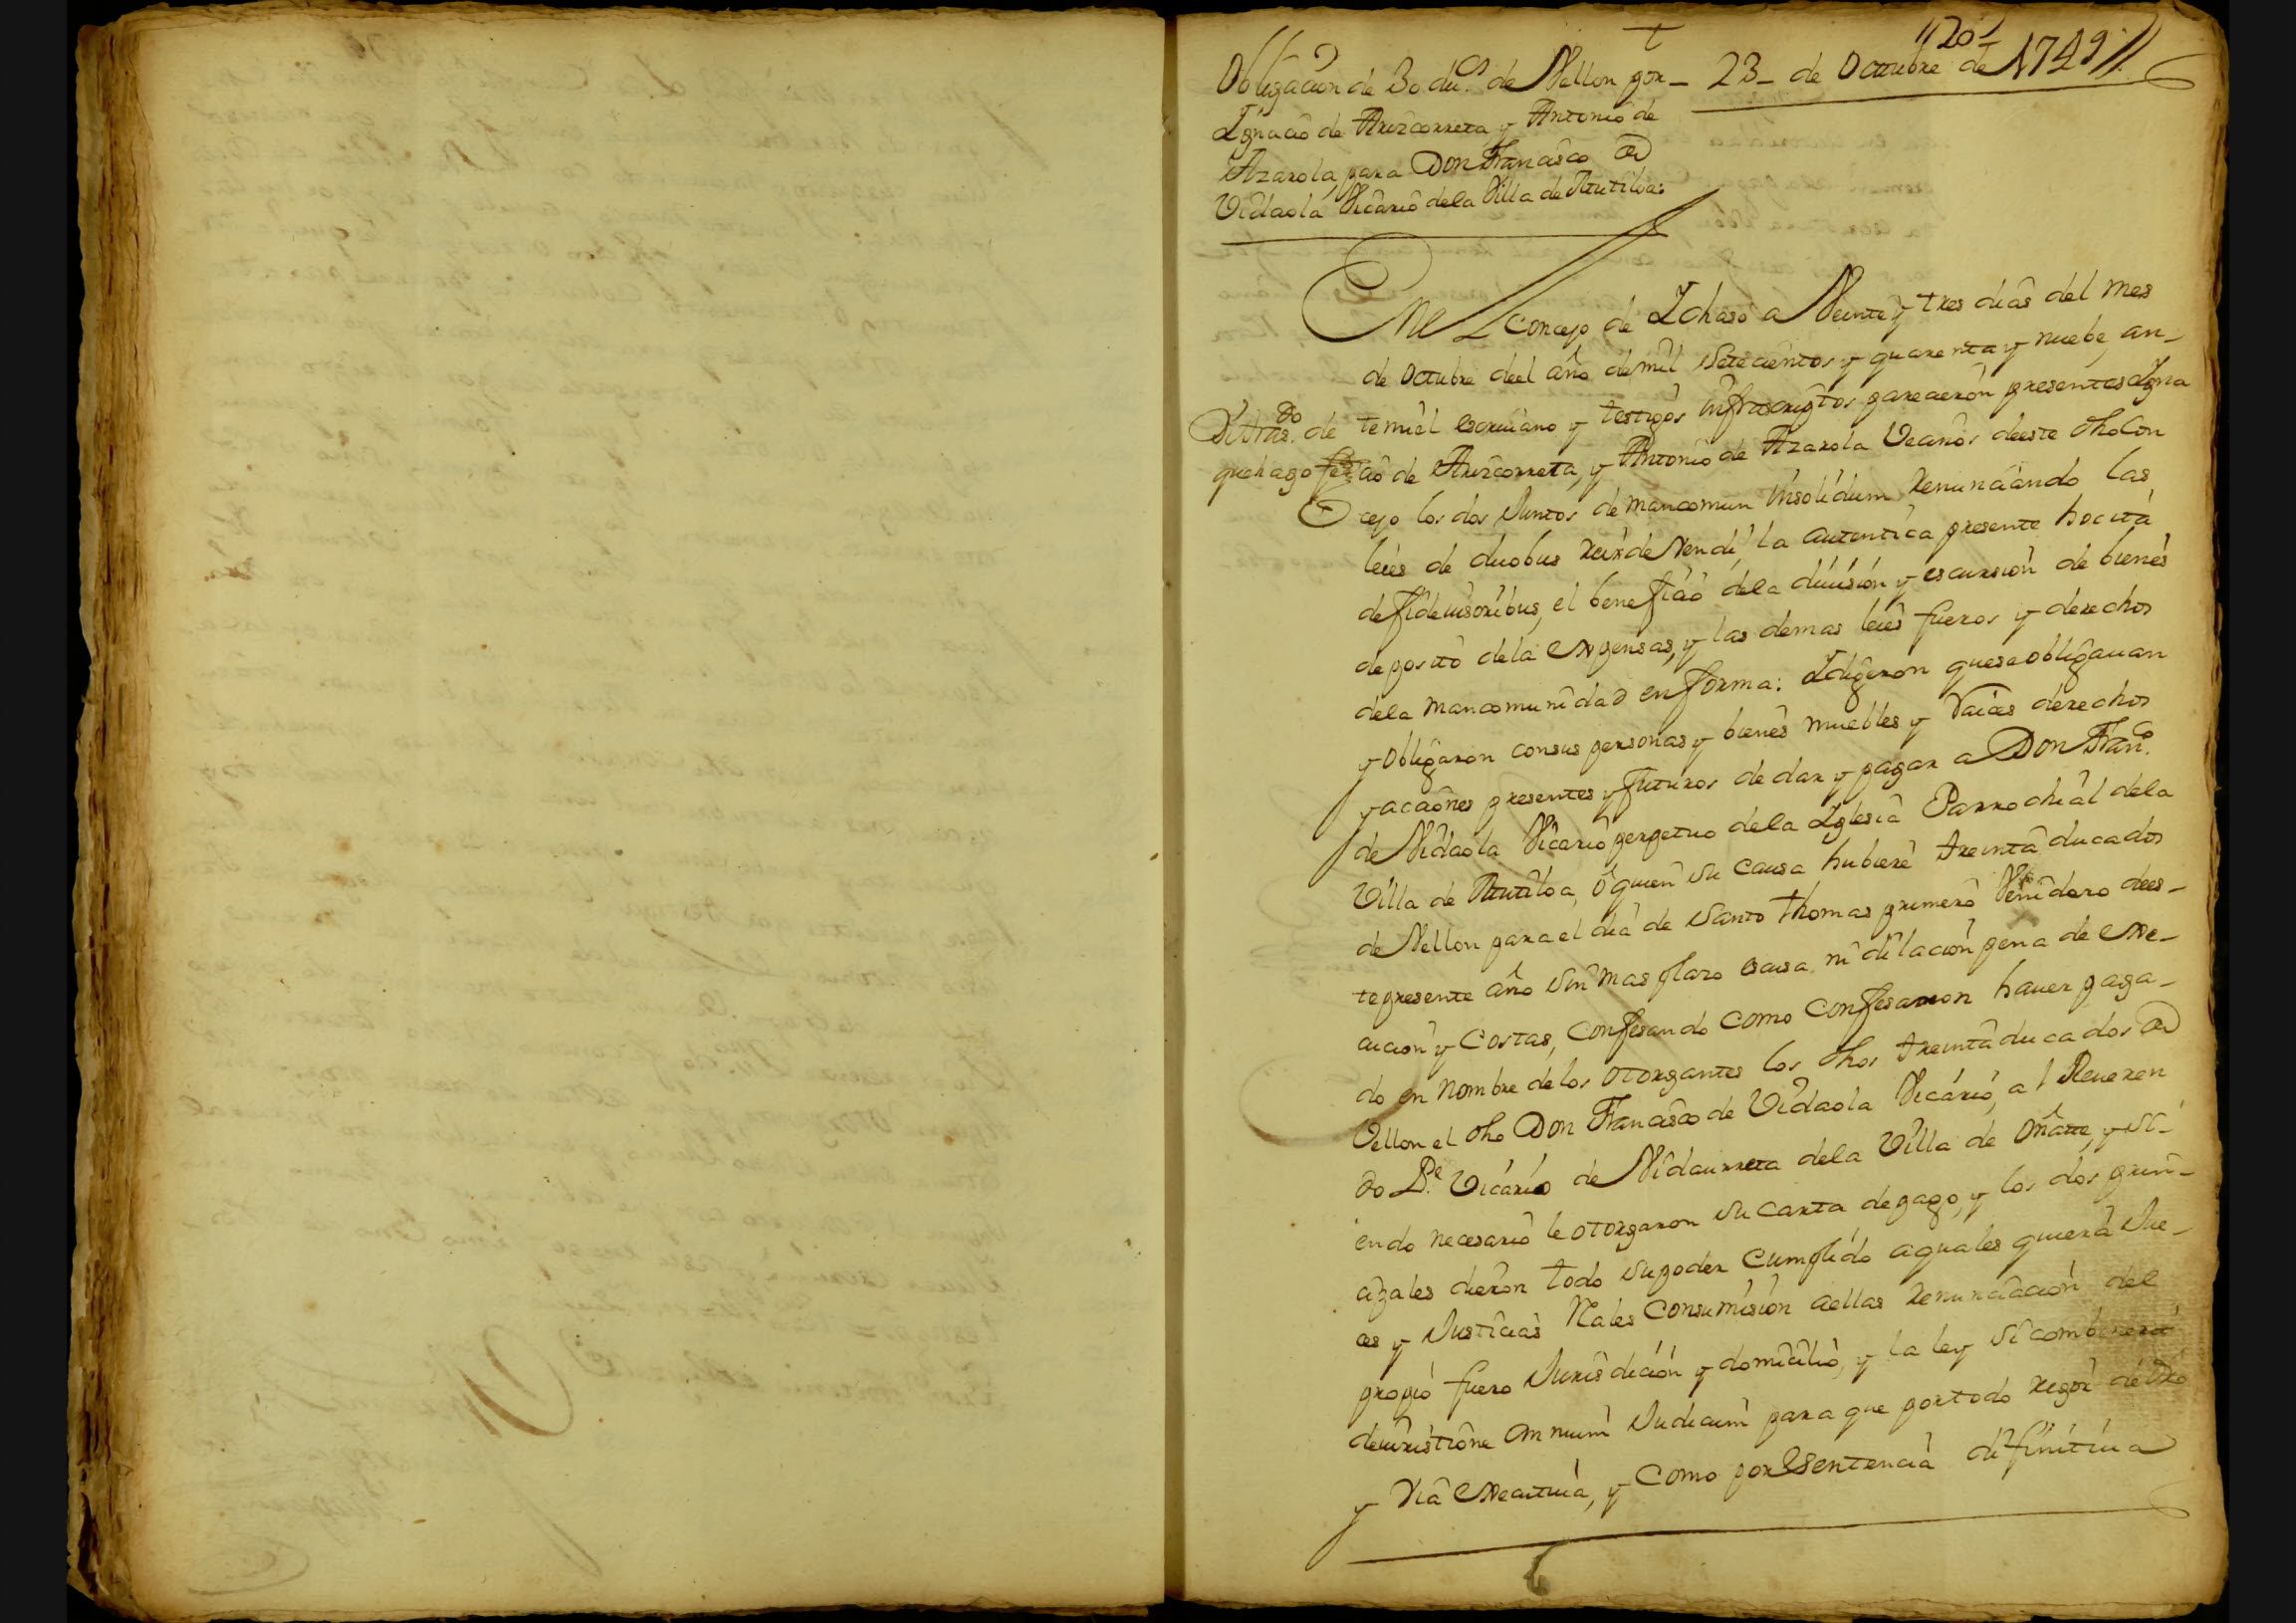 t
120
Obligacion de 30 du.os de Vellon por — 23 — de Octtubre de 1749 //
Ignacio de Arizcorreta y Antonio de
Azarola para Don Francisco de
Vidaola Vicario dela Villa de Mutiloa.
En el Concejo de Ichaso a Veinte y tres dias del mes
de Octubre deel año de mil Setecientos y quarenta y nuebe, an-
temi el escriuano y testigos infrascriptos parecieron presentes Igna
cio de Arizcorreta, y Antonio de Azarola Vecinos deeste dho Con
cejo los dos Juntos de mancomun insolidum Renunciando las
leies de duobus reix de vendi, la autentica presente hocita
de fideiusoribus, el beneficio dela diuision y escursion de bienes
deposito dela expensas, y las demas leies fueros y derechos
dela mancomunidad en forma: Idigeron que se obligauan
y obligaron consus personas y bienes muebles y raices derechos
y acciones presentes y futuros de dar y pagar a Don Fran.co
de Vidaola Vicario perpetuo dela Iglesia Parrochial dela
Villa de Mutiloa, ó quien su causa hubiere treinta ducados
de Vellon para el dia de Santo Thomas primero Venidero dees-
te presente año sin mas plazo escusa ni dilacion pena de exe-
cucion y Costas, Confesando como Confesaron hauer paga-
do en nombre de los otorgantes los dhos treinta ducados de
Vellon el dho Don Francisco de Vidaola Vicario, al Reueren
do P.e Vicario de Vidaurreta dela Villa de Oñatte, y si-
endo necesario le otorgaron su carta de pago, y los dos prin-
cipales dieron todo su poder Cumplido aquales quiera Jue-
ces y Justicias Rales Consumision aellas renunciacion del
propio fuero Jurisdicion y domicilio, y la ley Si combenerit
de iuristione omnium Judicum para que por todo rigor de dro
y via executiua, y Como por Sentencia difinitiua
de
que hago fee